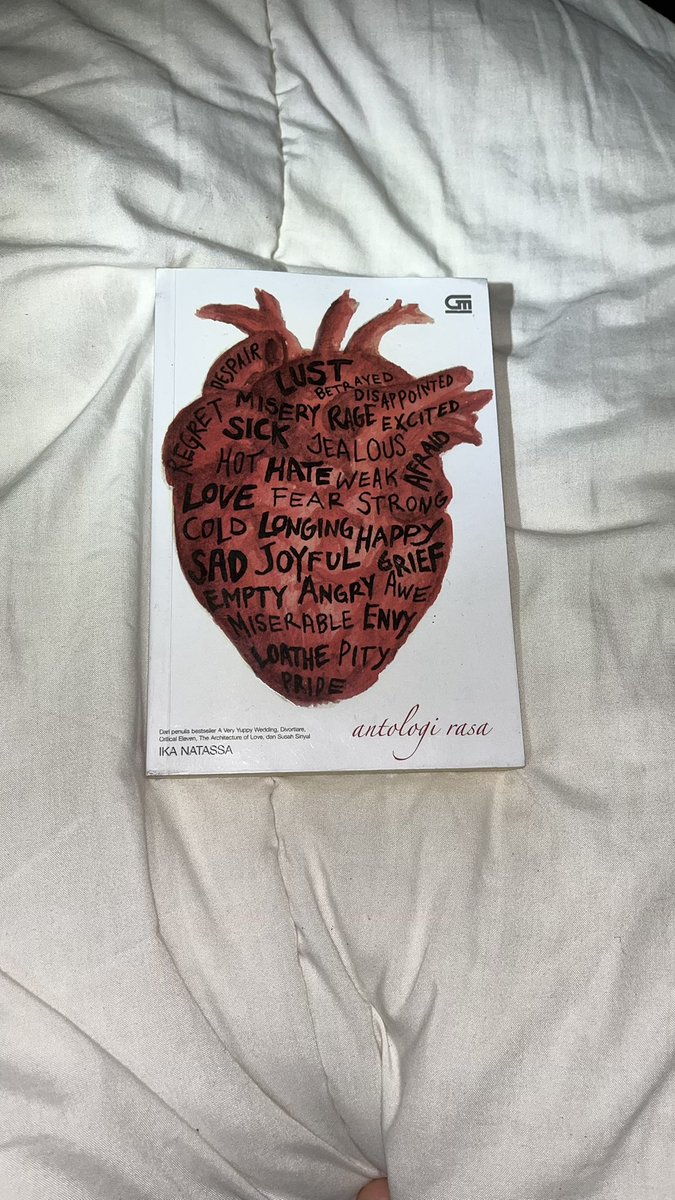 GM
DESPAIR
LUST
BETRAYED
DISAPPOINTED
REGRET MISERY RAGE EXCITED
SICK JEALOUS AFRAID
HOT HATE WEAK
LOVE FEAR STRONG
COLD LONGING HAPPY
SAD JOYFUL GRIEF
EMPTY ANGRY AWE
MISERABLE ENVY
LOATHE PITY
PRIDE
Dari penulis bestseller A Very Yuppy Wedding, Divortiare,
Critical Eleven, The Architecture of Love, dan Susah Sinyal
IKA NATASSA
antologi rasa